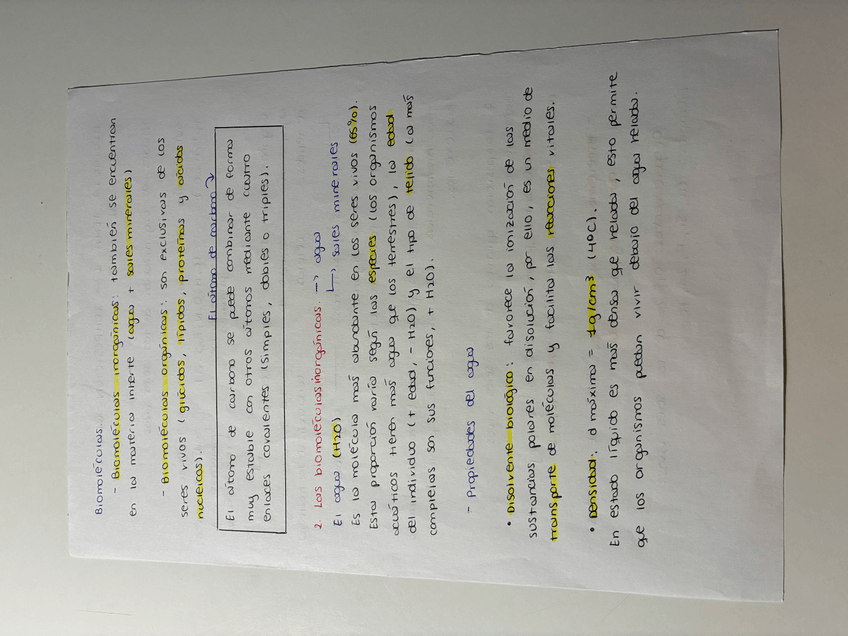 Biomoléculas.
- Biomoléculas inorgánicas: también se encuentran
en la materia inerte (agua + sales minerales)
- Biomoléculas orgánicas: son exclusivas de los
seres vivos (glúcidos, lípidos, proteínas y ácidos
nucleicos).
El átomo de carbono
El átomo de carbono se puede combinar de forma
muy estable con otros átomos mediante cuatro
enlaces covalentes (simples, dobles o triples).
2. Las biomoléculas inorgánicas. → agua
↳ sales minerales
El agua (H2O)
Es la molécula más abundante en los seres vivos (65%).
Esta proporción varía según las especies (los organismos
acuáticos tienen más agua que los terrestres), la edad
del individuo (+ edad, - H2O) y el tipo de tejido (a más
complejas son sus funciones, + H2O).
- Propiedades del agua
• Disolvente biológico: favorece la ionización de las
sustancias polares en disolución, por ello, es un medio de
transporte de moléculas y facilita las reacciones vitales.
• Densidad: d máxima = 1g/cm³ (4ºC).
En estado líquido es más denso que helado, esto permite
que los organismos puedan vivir debajo del agua helada.